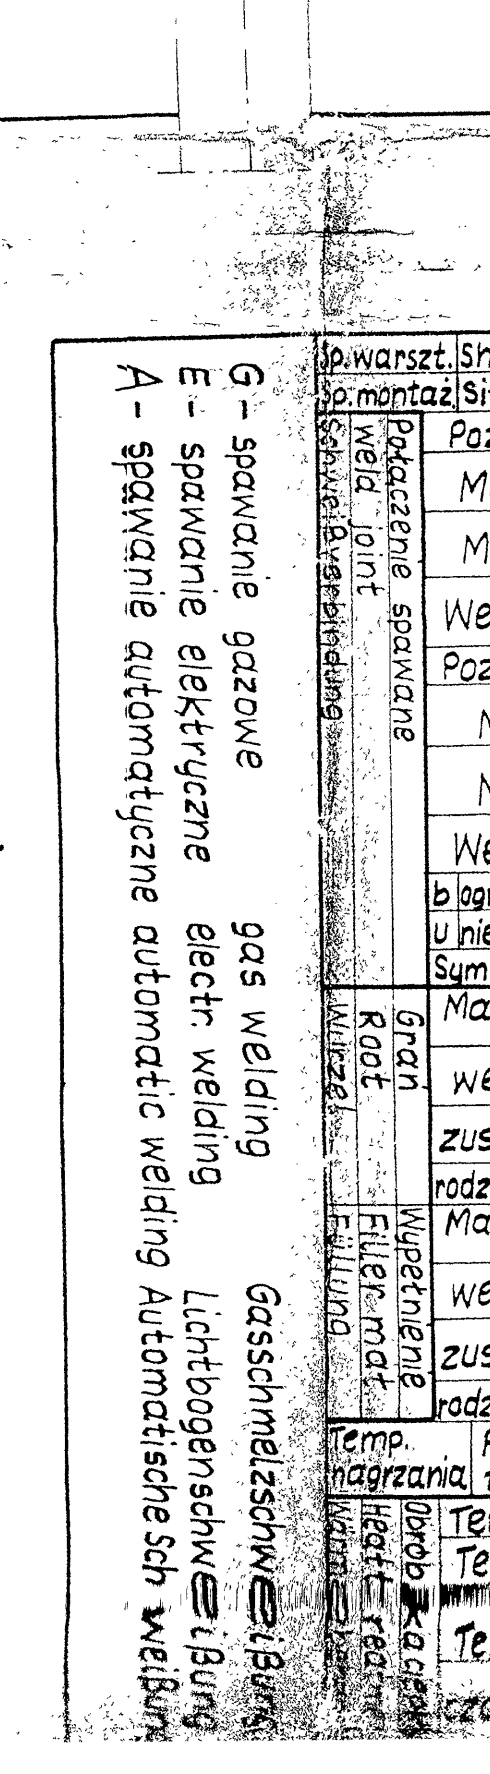 G - spawanie gazowe gas welding Gasschmelzschweißung
E - spawanie elektryczne electr. welding Lichtbogenschweißung
A - spawanie automatyczne automatic welding Automatische Schweißun
Sp. warszt. Sh
Sp. montaż Si
Połączenie spawane
weld joint
Schweißverbindung
Poz
M
M
We
Poz
N
N
We
b ogr
u nie
Sym
Grań
Root
Wurzel
Ma
we
zus
rodz
Wypełnienie
Filler mat
Füllung
Ma
we
zus
rodz
Temp.
nagrzania
Obrób
Heatt
Te
Te
Te